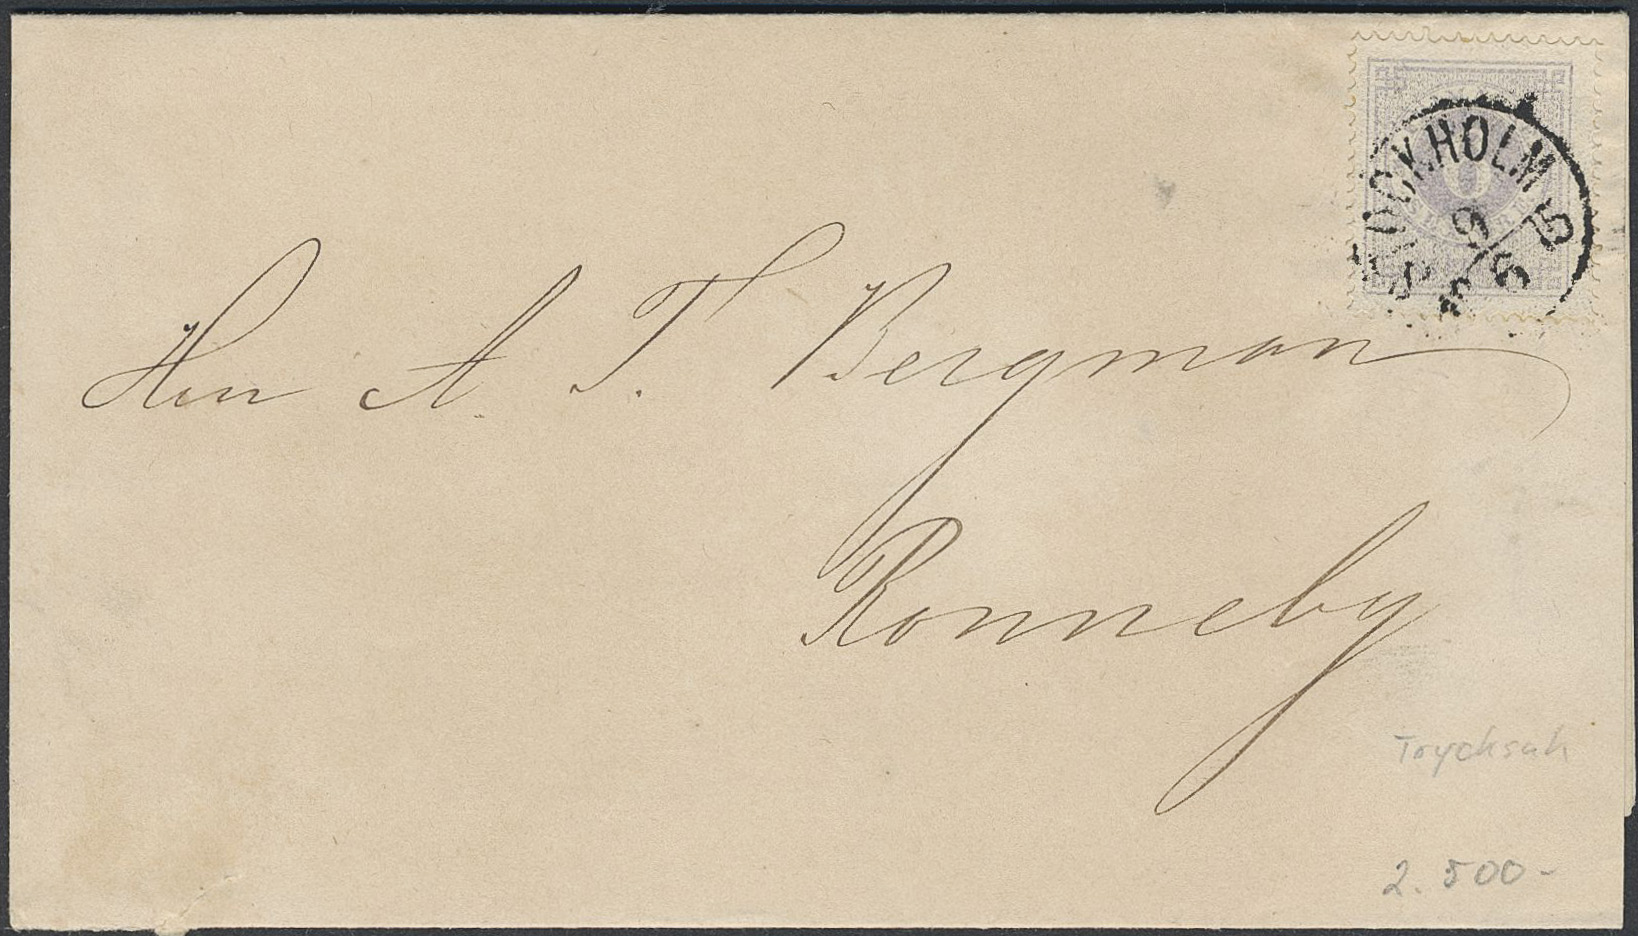 STOCKHOLM
6
Herr A. T. Bergman
Ronneby
Trycksak
2.500-